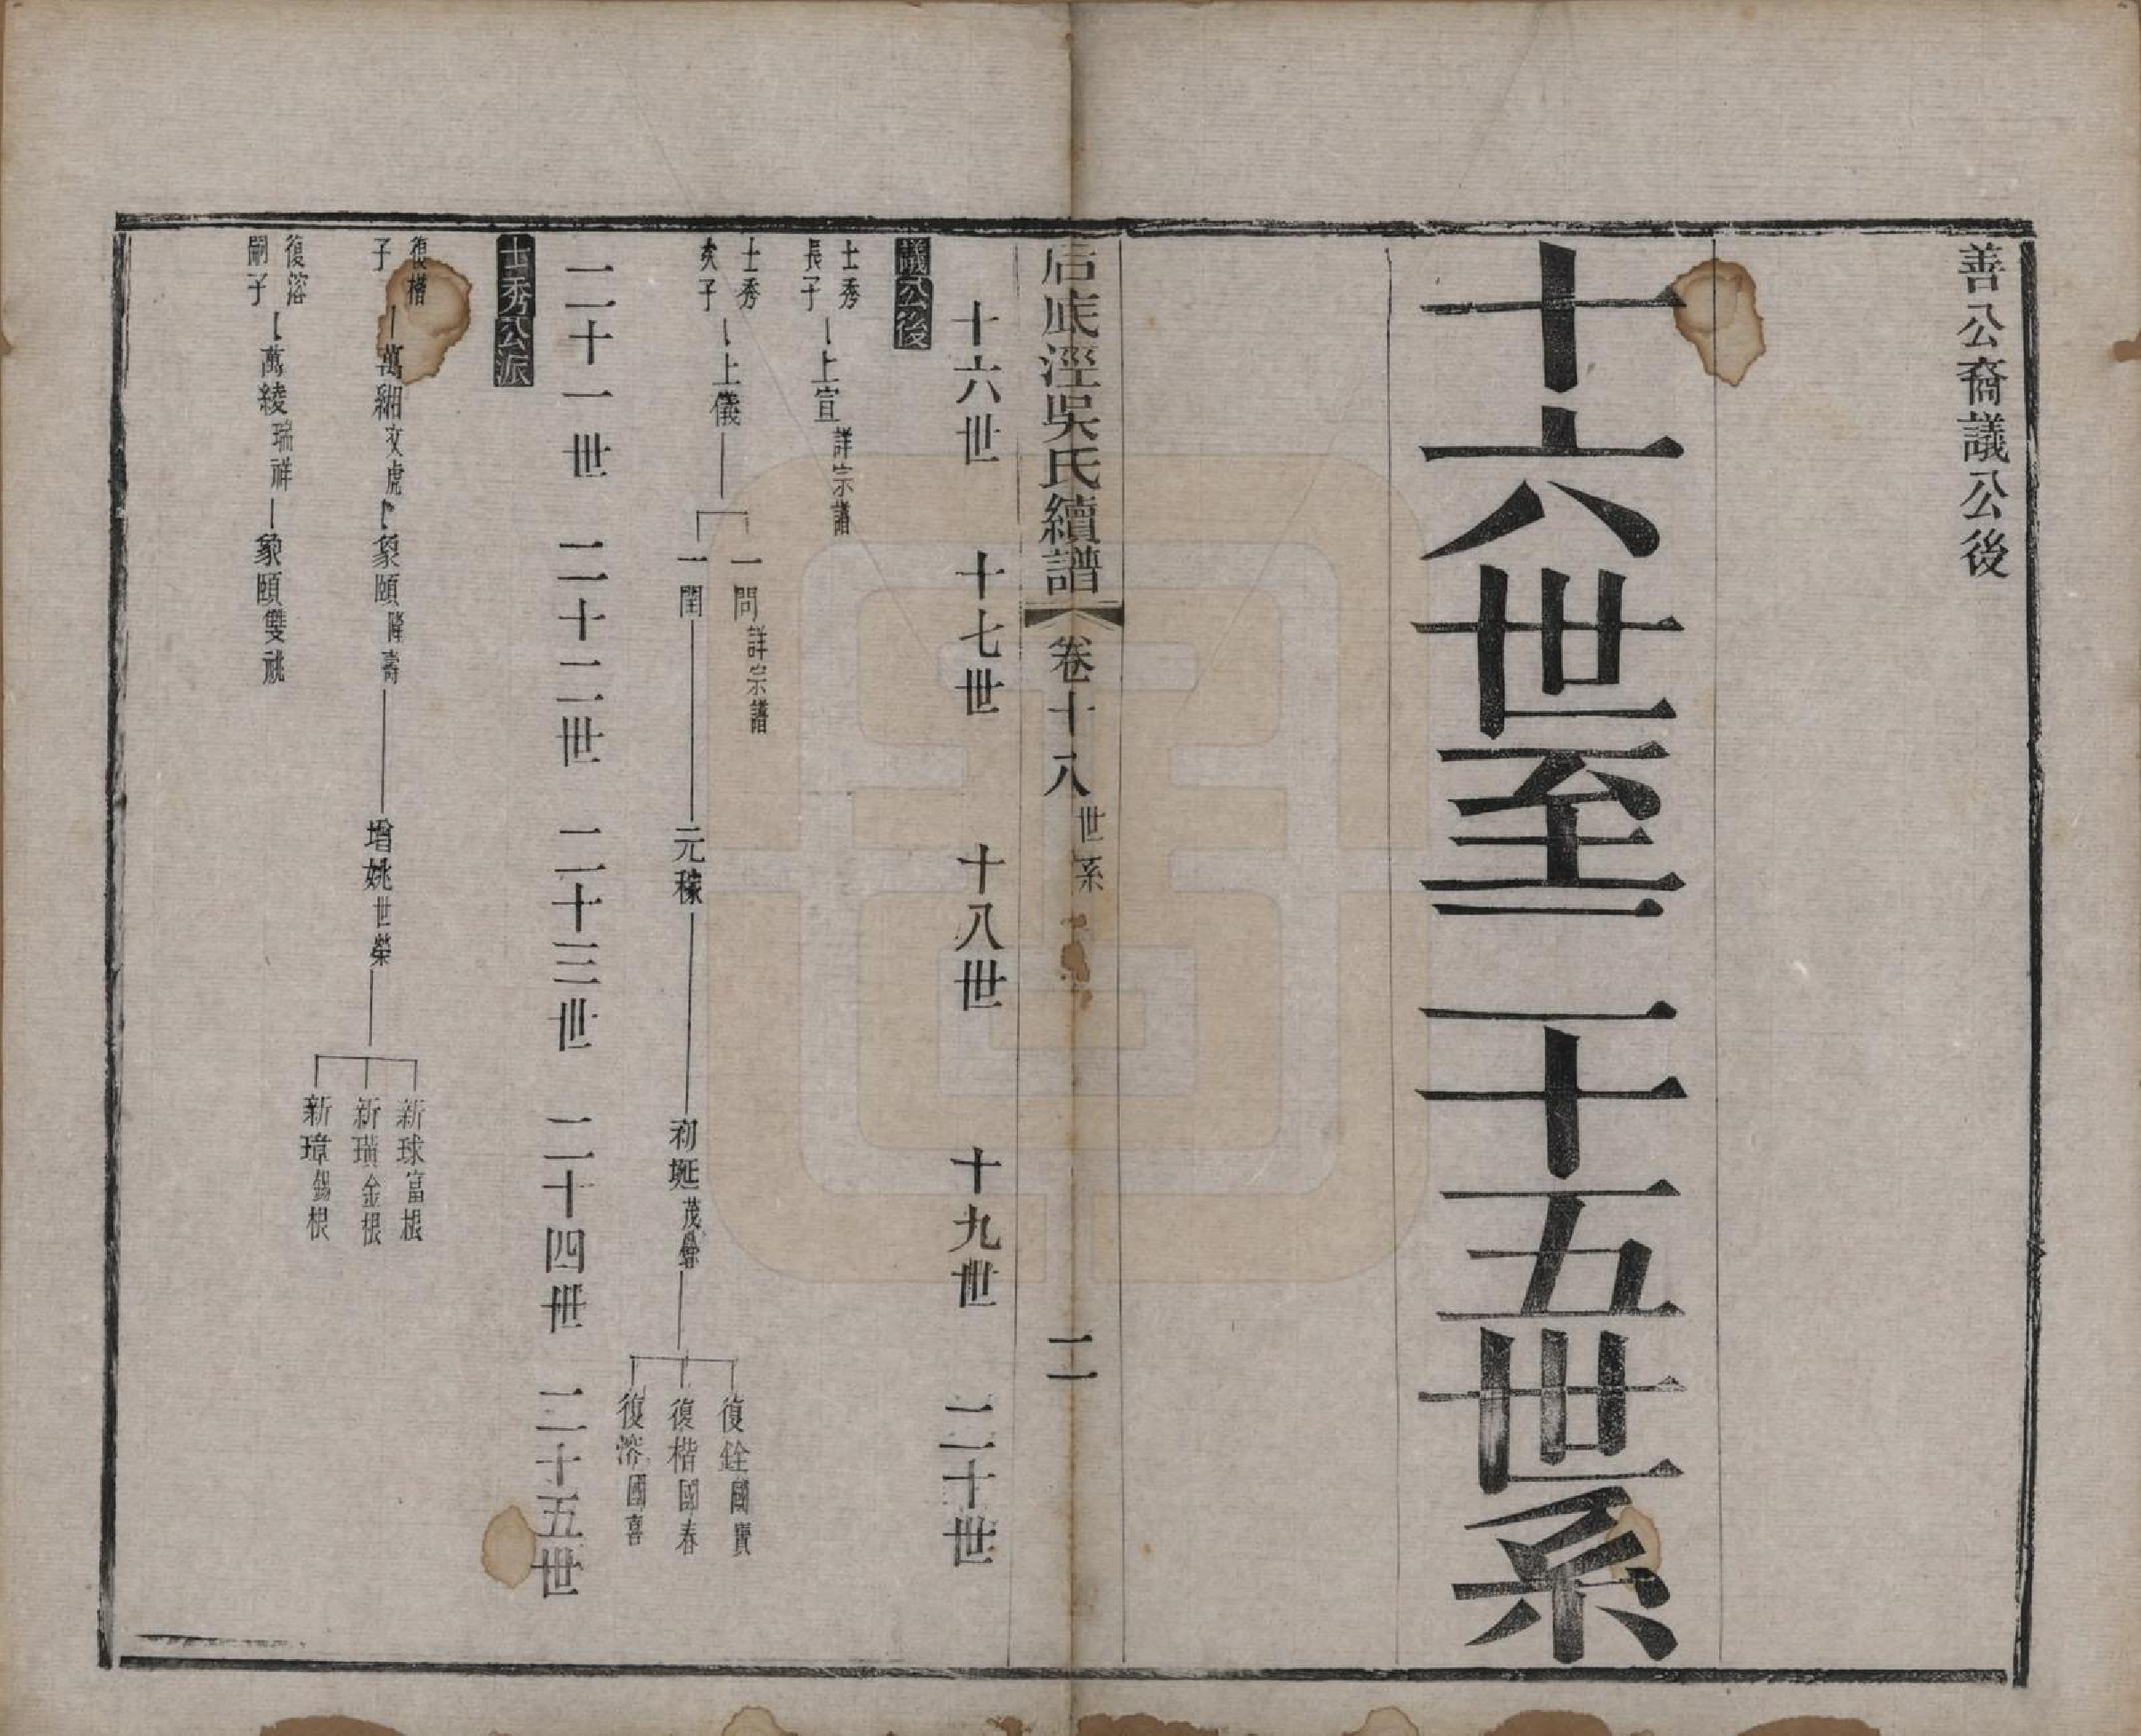 善公裔議公後
十六世至二十五世系
后底涇吳氏續譜 卷十八 世系 二
十六世 十七世 十八世 十九世 二十世
議公後
士秀長子 上宣 詳宗譜
士秀次子 上儀
一問 詳宗譜
一閏 元稼 初埏 茂
復銓 國寶
復楷 國春
復溶 國喜
二十一世 二十二世 二十三世 二十四世 二十五世
士秀公派
復楷子 萬細 汶虎 象頤 隆壽 增姚 世榮
新球 富根
新璜 金根
新璋 錫根
復溶嗣子 萬綾 瑞祥 象頤 雙祧